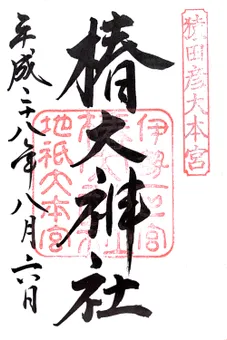 猿田彦大本宮
椿大神社
伊勢一宮
地祇大本宮
平成二十八年八月六日